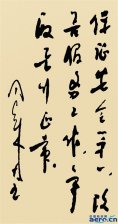 保证安全第一,改
善服务工作,争
取飞行正常
周恩来
aero.cn